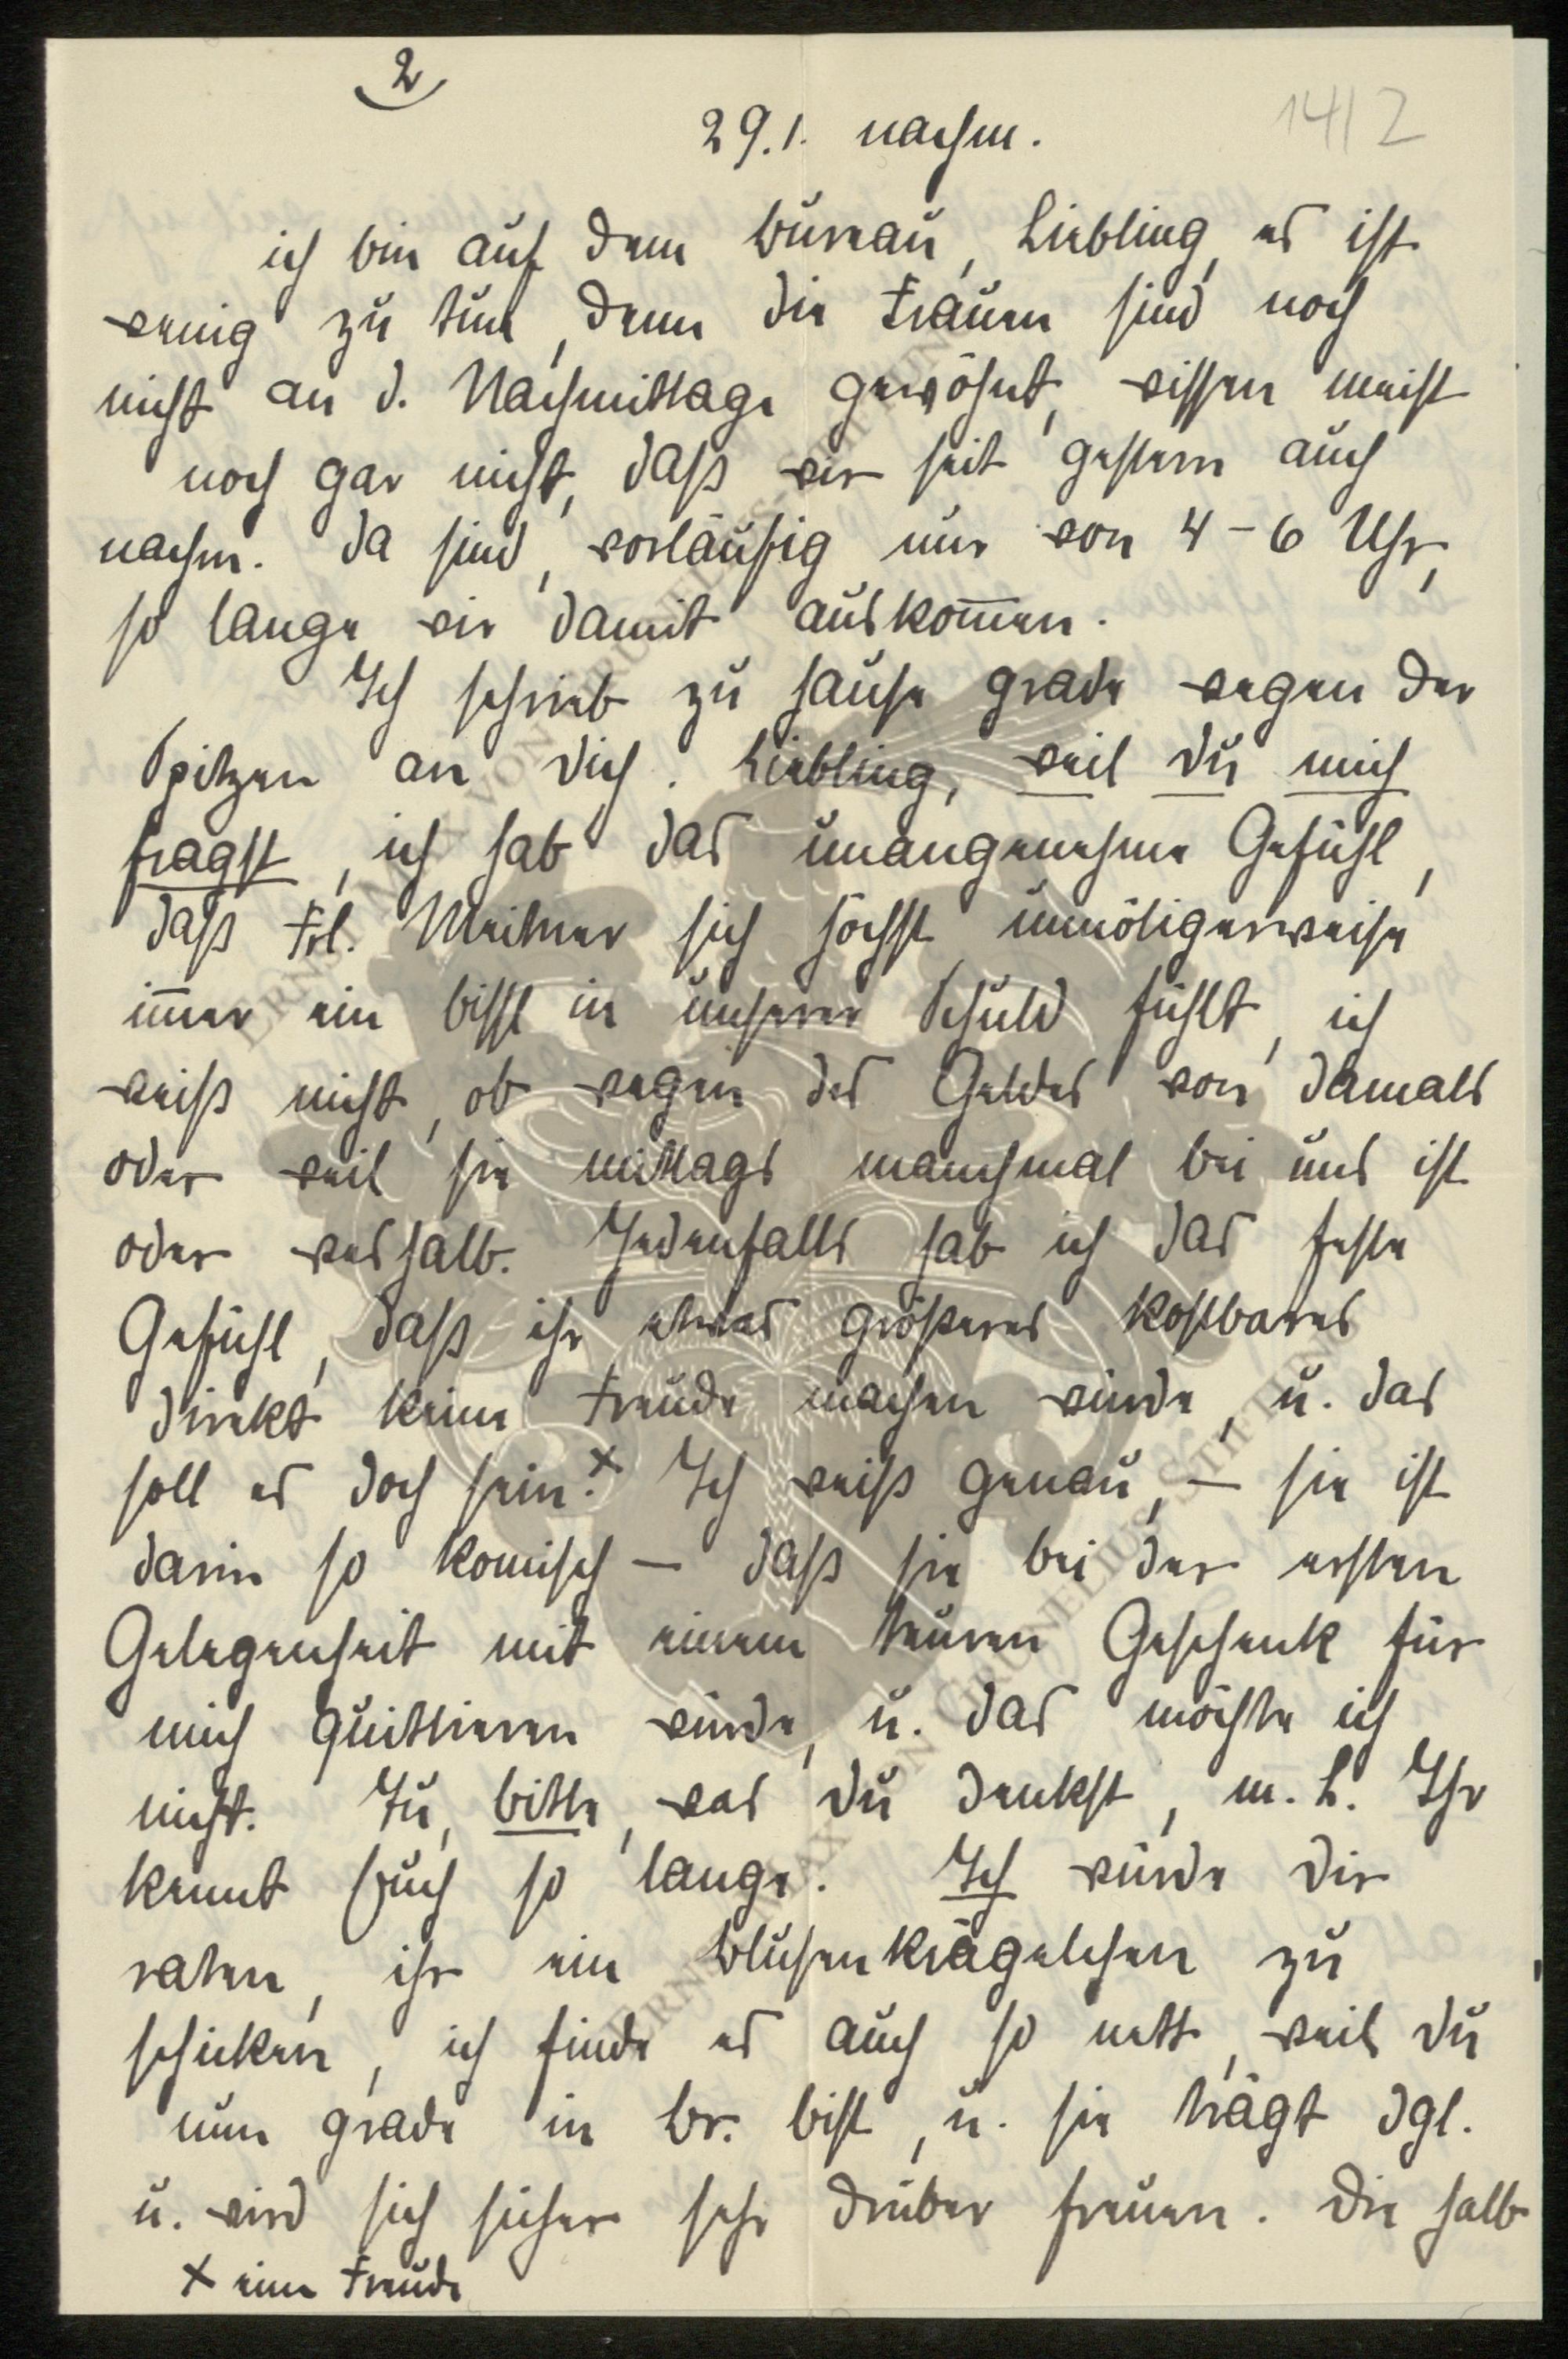 2
29.1. nachm.
14/2
ich bin auf dem Bureau, Liebling, es ist
wenig zu tun, denn die Frauen sind noch
nicht an d. Nachmittage gewöhnt, wissen meist
noch gar nicht, daß wir seit gestern auch
nachm. da sind, vorläufig nur von 4-6 Uhr,
so lange wir damit auskom̅en.
Ich schrieb zu Hause grade wegen der
Spitzen an Dich. Liebling, weil Du mich
fragst, ich hab das unangenehme Gefühl,
daß Frl. Meitner sich höchst unnötigerweise
im̅er ein bissl in unserer Schuld fühlt, ich
weiß nicht, ob wegen des Geldes von damals
oder weil sie mittags manchmal bei uns ist
oder weshalb. Jedenfalls hab ich das feste
Gefühl, daß ihr etwas größeres kostbares
direkt keine Freude machen würde, u. das
soll es doch sein.x Ich weiß genau, – sie ist
darin so komisch – daß sie bei der ersten
Gelegenheit mit einem teuren Geschenk für
mich quittieren würde, u. das möchte ich
nicht. Tu, bitte, was Du denkst, m. L. Ihr
kennt Euch so lange. Ich würde Dir
raten, ihr ein Blusenkrägelchen zu
schicken, ich finde es auch so nett, weil Du
nun grade in Br. bist, u. sie trägt dgl.
u. wird sich sicher sehr drüber freuen. Die halb
x eine Freude
ERNST MAX VON GRUNELIUS-STIFTUNG
ERNST MAX VON GRUNELIUS-STIFTUNG